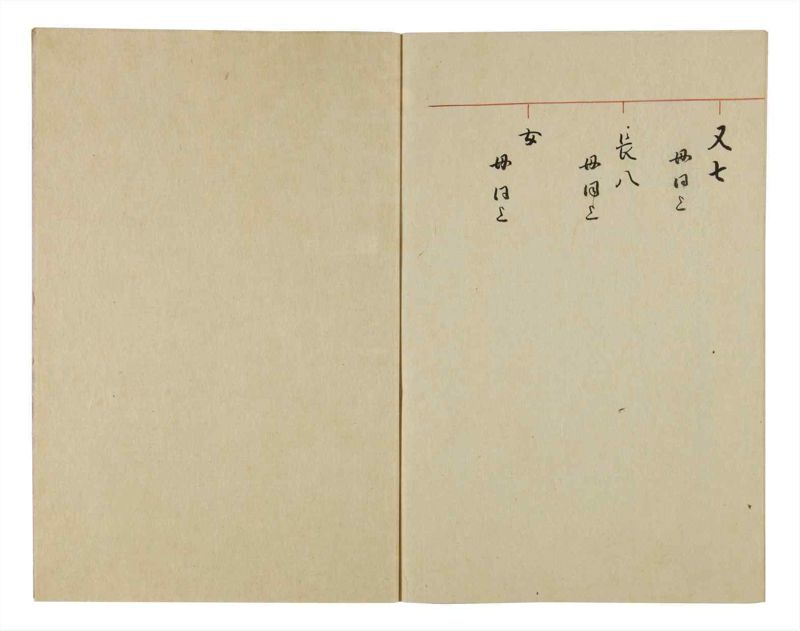 又七
母同上
長八
母同上
女
母同上